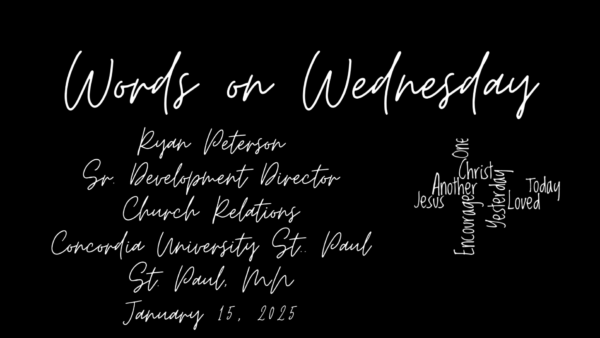 Words on Wednesday
Ryan Peterson
Sr. Development Director
Church Relations
Concordia University St.. Paul
St. Paul, MN
January 15, 2025
One
Christ
Another
Jesus
Encourage
Yesterday
Loved
Today